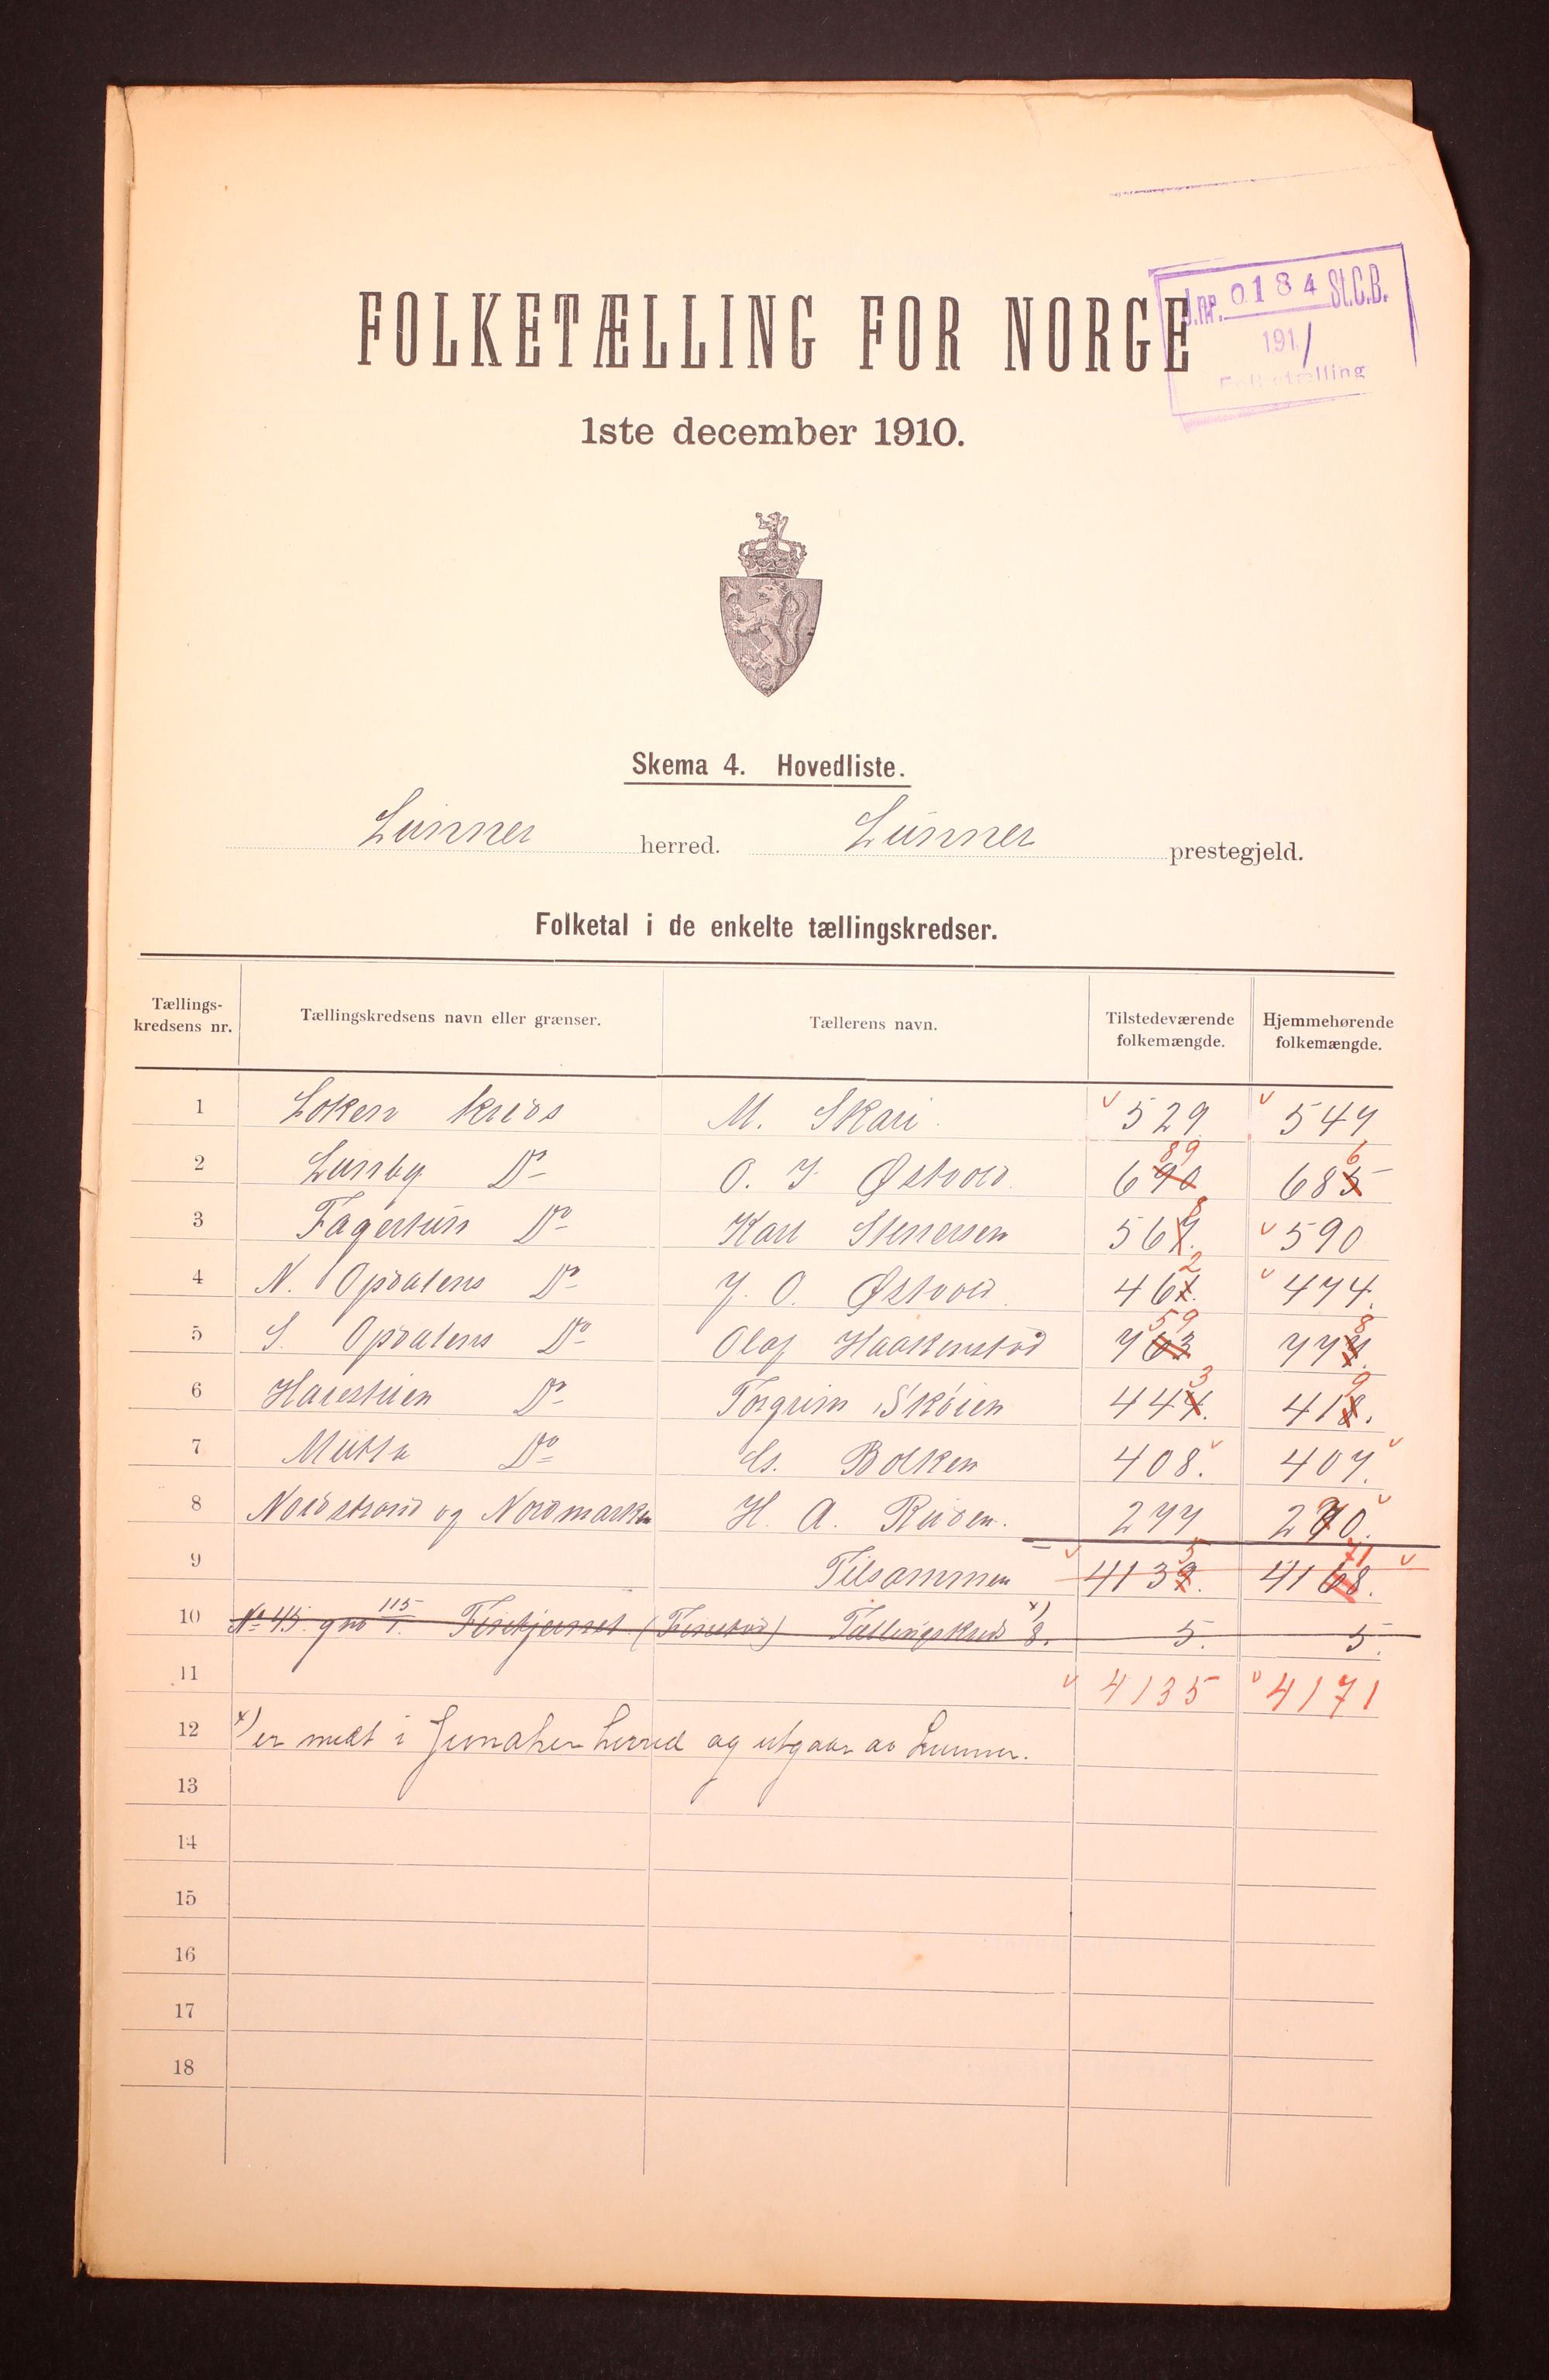 J.nr. 0184 St.C.B.
1911
Folketælling
FOLKETÆLLING FOR NORGE
1ste december 1910.
Skema 4. Hovedliste.
Lunner herred. Lunner prestegjeld.
Folketal i de enkelte tællingskredser.
Tællings-kredsens nr. Tællingskredsens navn eller grænser. Tællerens navn. Tilstedeværende folkemængde. Hjemmehørende folkemængde.
1 Loken kreds M. Skari. 529 547
2 Lunby Do O. J. Østvold. 690 89 685 6
3 Fagertun Do Karl Stenersen 567. 8 590
4 N. Opdalens Do J. O. Østvold. 461. 2 474.
5 S. Opdalens Do Olaf Haakenstad 763 59 777. 8
6 Harestuen Do Torgrim Skøien 444. 3 418. 9
7 Mutta Do Cs. Bolken 408. 407.
8 Nordstrand og Nordmarken H. A. Ruden. 277 270.
9 Tilsammen 4139. 5 4168. 71
10 No 45. gno 115/1. (Finstad) Tællingskreds 8. x) 5. 5.
11 4135 4171
12 x) er medt i Jevnaker herred og utgaar av Lunner.
13
14
15
16
17
18